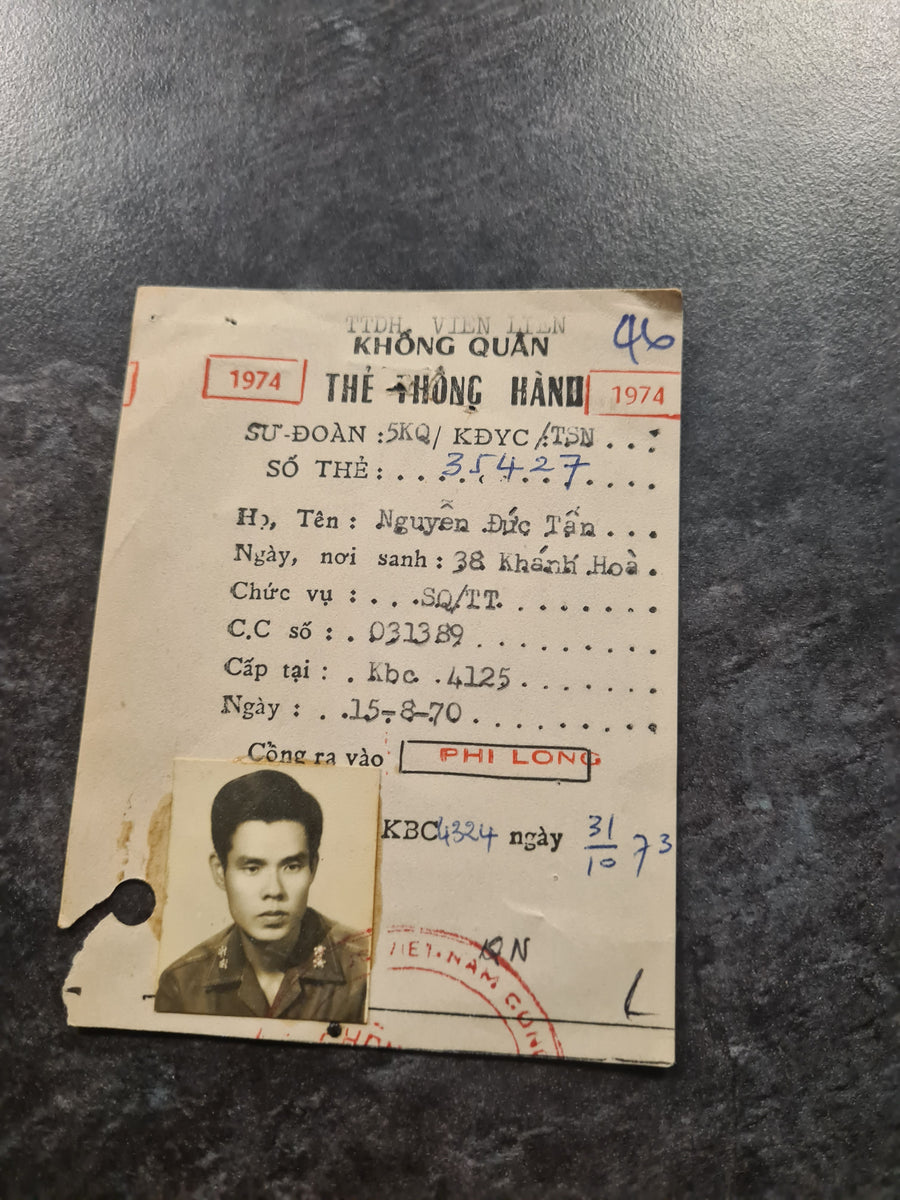 TTDH VIEN LIEN
KHÔNG QUÂN
46
1974 THẺ THÔNG HÀNH 1974
SƯ-ĐOÀN : 5KQ/ KĐYC /TSN . . .
SỐ THẺ : . . 35427 . . .
Họ, Tên : Nguyễn Đức Tấn . . .
Ngày, nơi sanh : 38 Khánh Hoà .
Chức vụ : . . . SQ/TT. . . . . . . .
C.C số : . 031389 . . . . . . . . .
Cấp tại : . Kbc . 4125 . . . . . . .
Ngày : . . .15-8-70 . . . . . . . . .
Cổng ra vào PHI LONG
KBC 4324 ngày 31/10 73
VIET-NAM CỘN